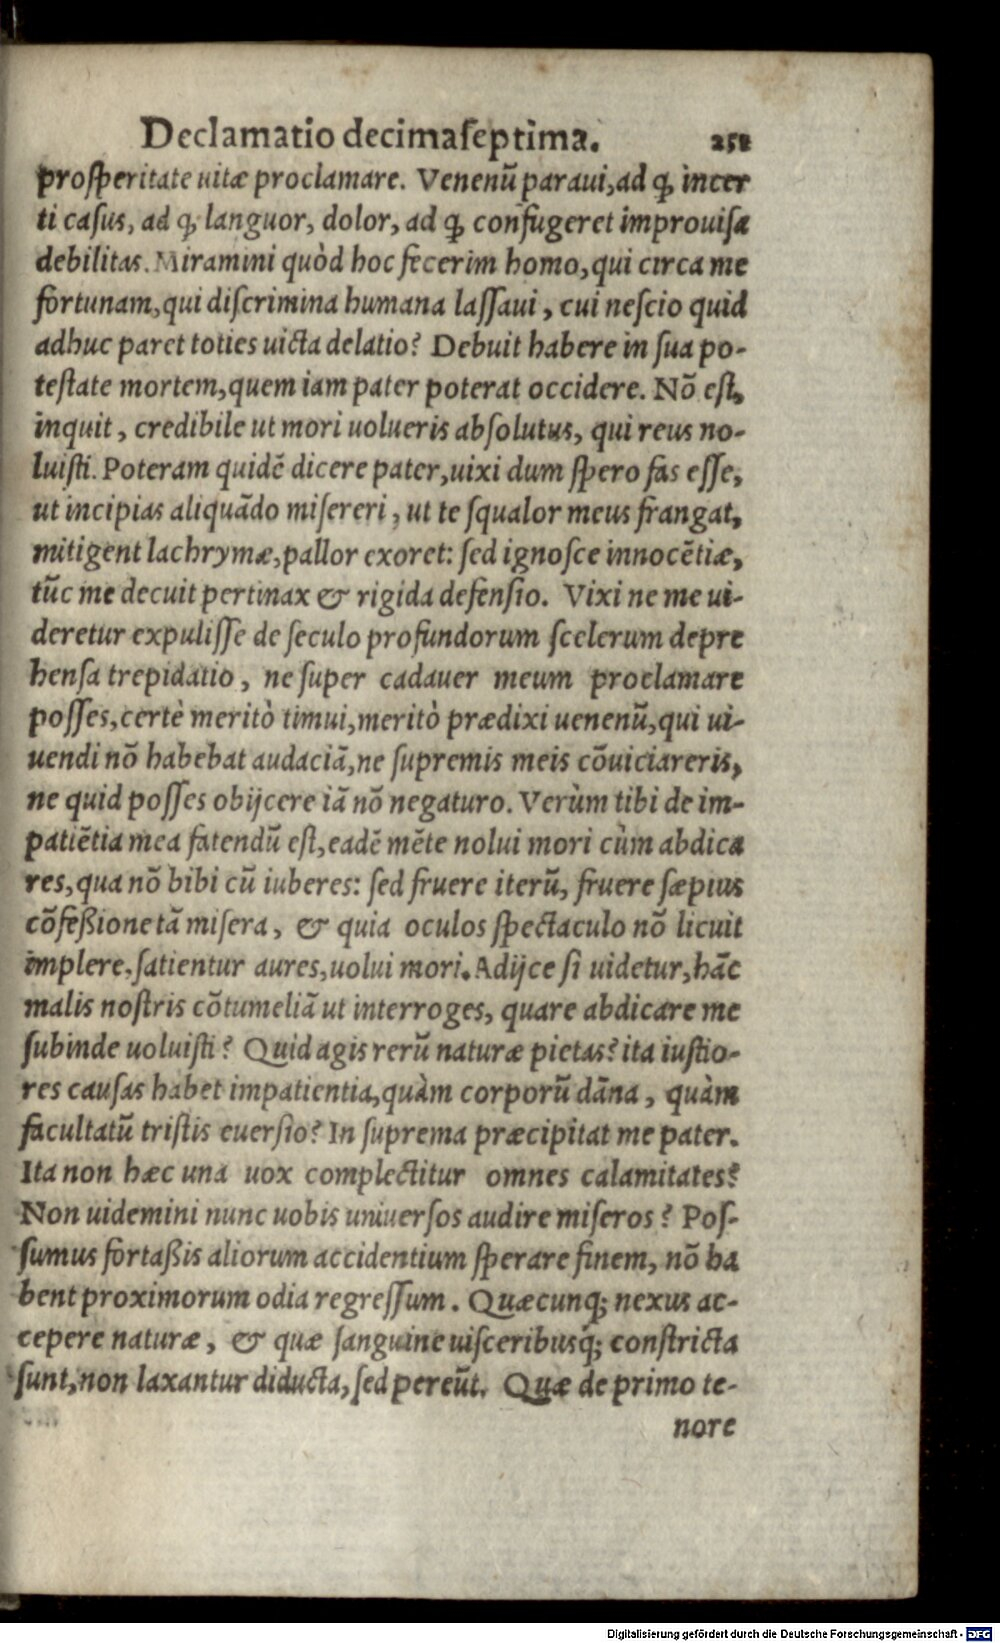 Declamatio decimaſeptima. 251
proſperitate uitæ proclamare. Venenũ paraui, ad ꝗ, incer
ti caſus, ad ꝗ, languor, dolor, ad ꝗ, confugeret improuiſa
debilitas. Miramini quòd hoc fecerim homo, qui circa me
fortunam, qui diſcrimina humana laſſaui, cui neſcio quid
adhuc paret toties uicta delatio? Debuit habere in ſua po-
teſtate mortem, quem iam pater poterat occidere. Nõ eſt,
inquit, credibile ut mori uolueris abſolutus, qui reus no-
luiſti. Poteram quidẽ dicere pater, uixi dum ſpero fas eſſe,
ut incipias aliquãdo miſereri, ut te ſqualor meus frangat,
mitigent lachrymæ, pallor exoret: ſed ignoſce innocẽtiæ,
tũc me decuit pertinax & rigida defenſio. Vixi ne me ui-
deretur expuliſſe de ſeculo profundorum ſcelerum depre
henſa trepidatio, ne ſuper cadauer meum proclamare
poſſes, certè meritò timui, meritò prædixi uenenũ, qui ui-
uendi nõ habebat audaciã, ne ſupremis meis cõuiciareris,
ne quid poſſes obijcere iã nõ negaturo. Verùm tibi de im-
patiẽtia mea fatendũ eſt, eadẽ mẽte nolui mori cùm abdica
res, qua nõ bibi cũ iuberes: ſed fruere iterũ, fruere ſæpius
cõfeßione tã miſera, & quia oculos ſpectaculo nõ licuit
implere, ſatientur aures, uolui mori. Adijce ſi uidetur, hãc
malis noſtris cõtumeliã ut interroges, quare abdicare me
ſubinde uoluiſti? Quid agis rerũ naturæ pietas? ita iuſtio-
res cauſas habet impatientia, quàm corporũ dãna, quàm
facultatũ triſtis euerſio? In ſuprema præcipitat me pater.
Ita non hæc una uox complectitur omnes calamitates?
Non uidemini nunc uobis uniuerſos audire miſeros? Poſ-
ſumus fortaßis aliorum accidentium ſperare finem, nõ ha
bent proximorum odia regreſſum. Quæcunq; nexus ac-
cepere naturæ, & quæ ſanguine uiſceribusq; conſtricta
ſunt, non laxantur diducta, ſed pereũt. Quæ de primo te-
nore
Digitalisierung gefördert durch die Deutsche Forschungsgemeinschaft - DFG